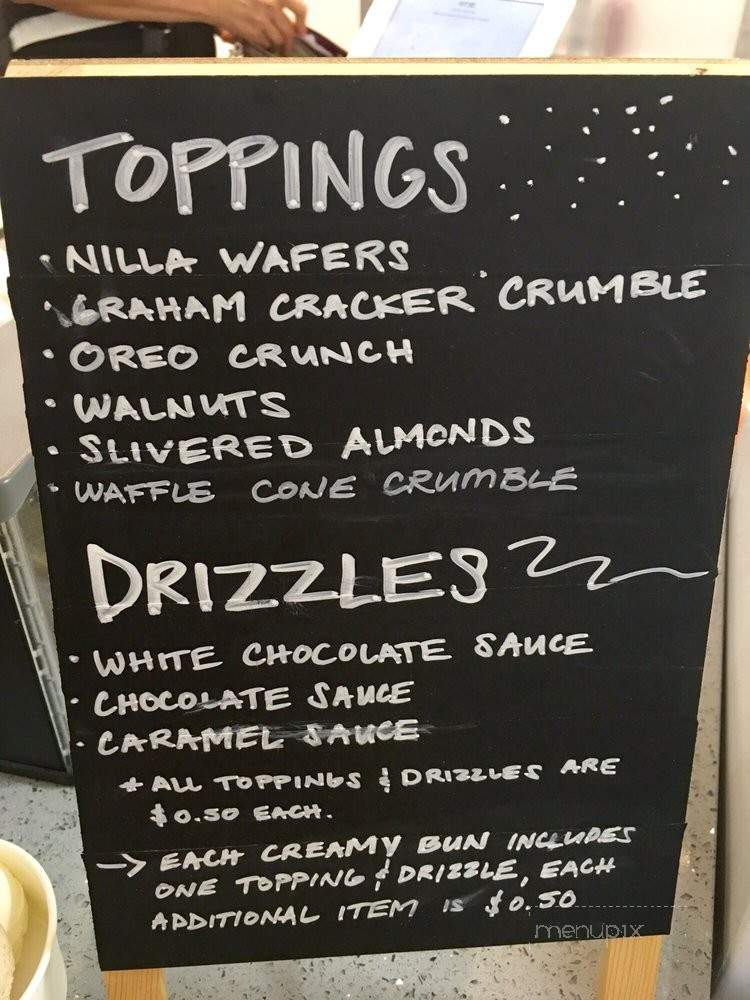 TOPPINGS
· NILLA WAFERS
· GRAHAM CRACKER CRUMBLE
· OREO CRUNCH
· WALNUTS
· SLIVERED ALMONDS
· WAFFLE CONE CRUMBLE
DRIZZLES
· WHITE CHOCOLATE SAUCE
· CHOCOLATE SAUCE
· CARAMEL SAUCE
* ALL TOPPINGS & DRIZZLES ARE
$0.50 EACH.
→ EACH CREAMY BUN INCLUDES
ONE TOPPING & DRIZZLE, EACH
ADDITIONAL ITEM IS $0.50
menupix